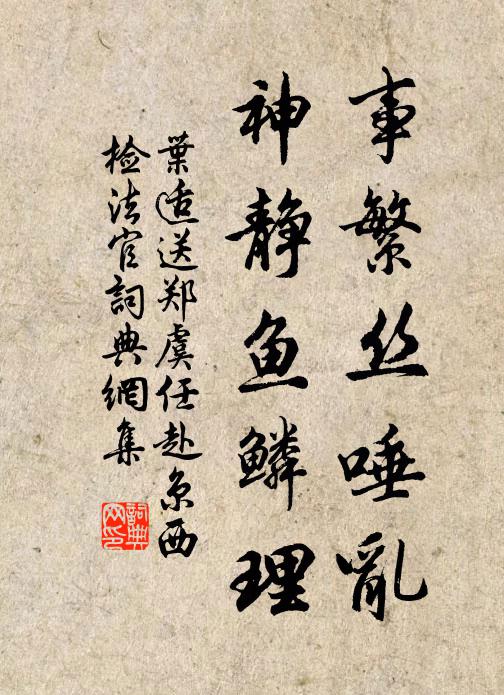 事繁丝唾亂
神静鱼鳞理
葉适送郑虞任赴京西
检法官詞典網集
詞典
网印